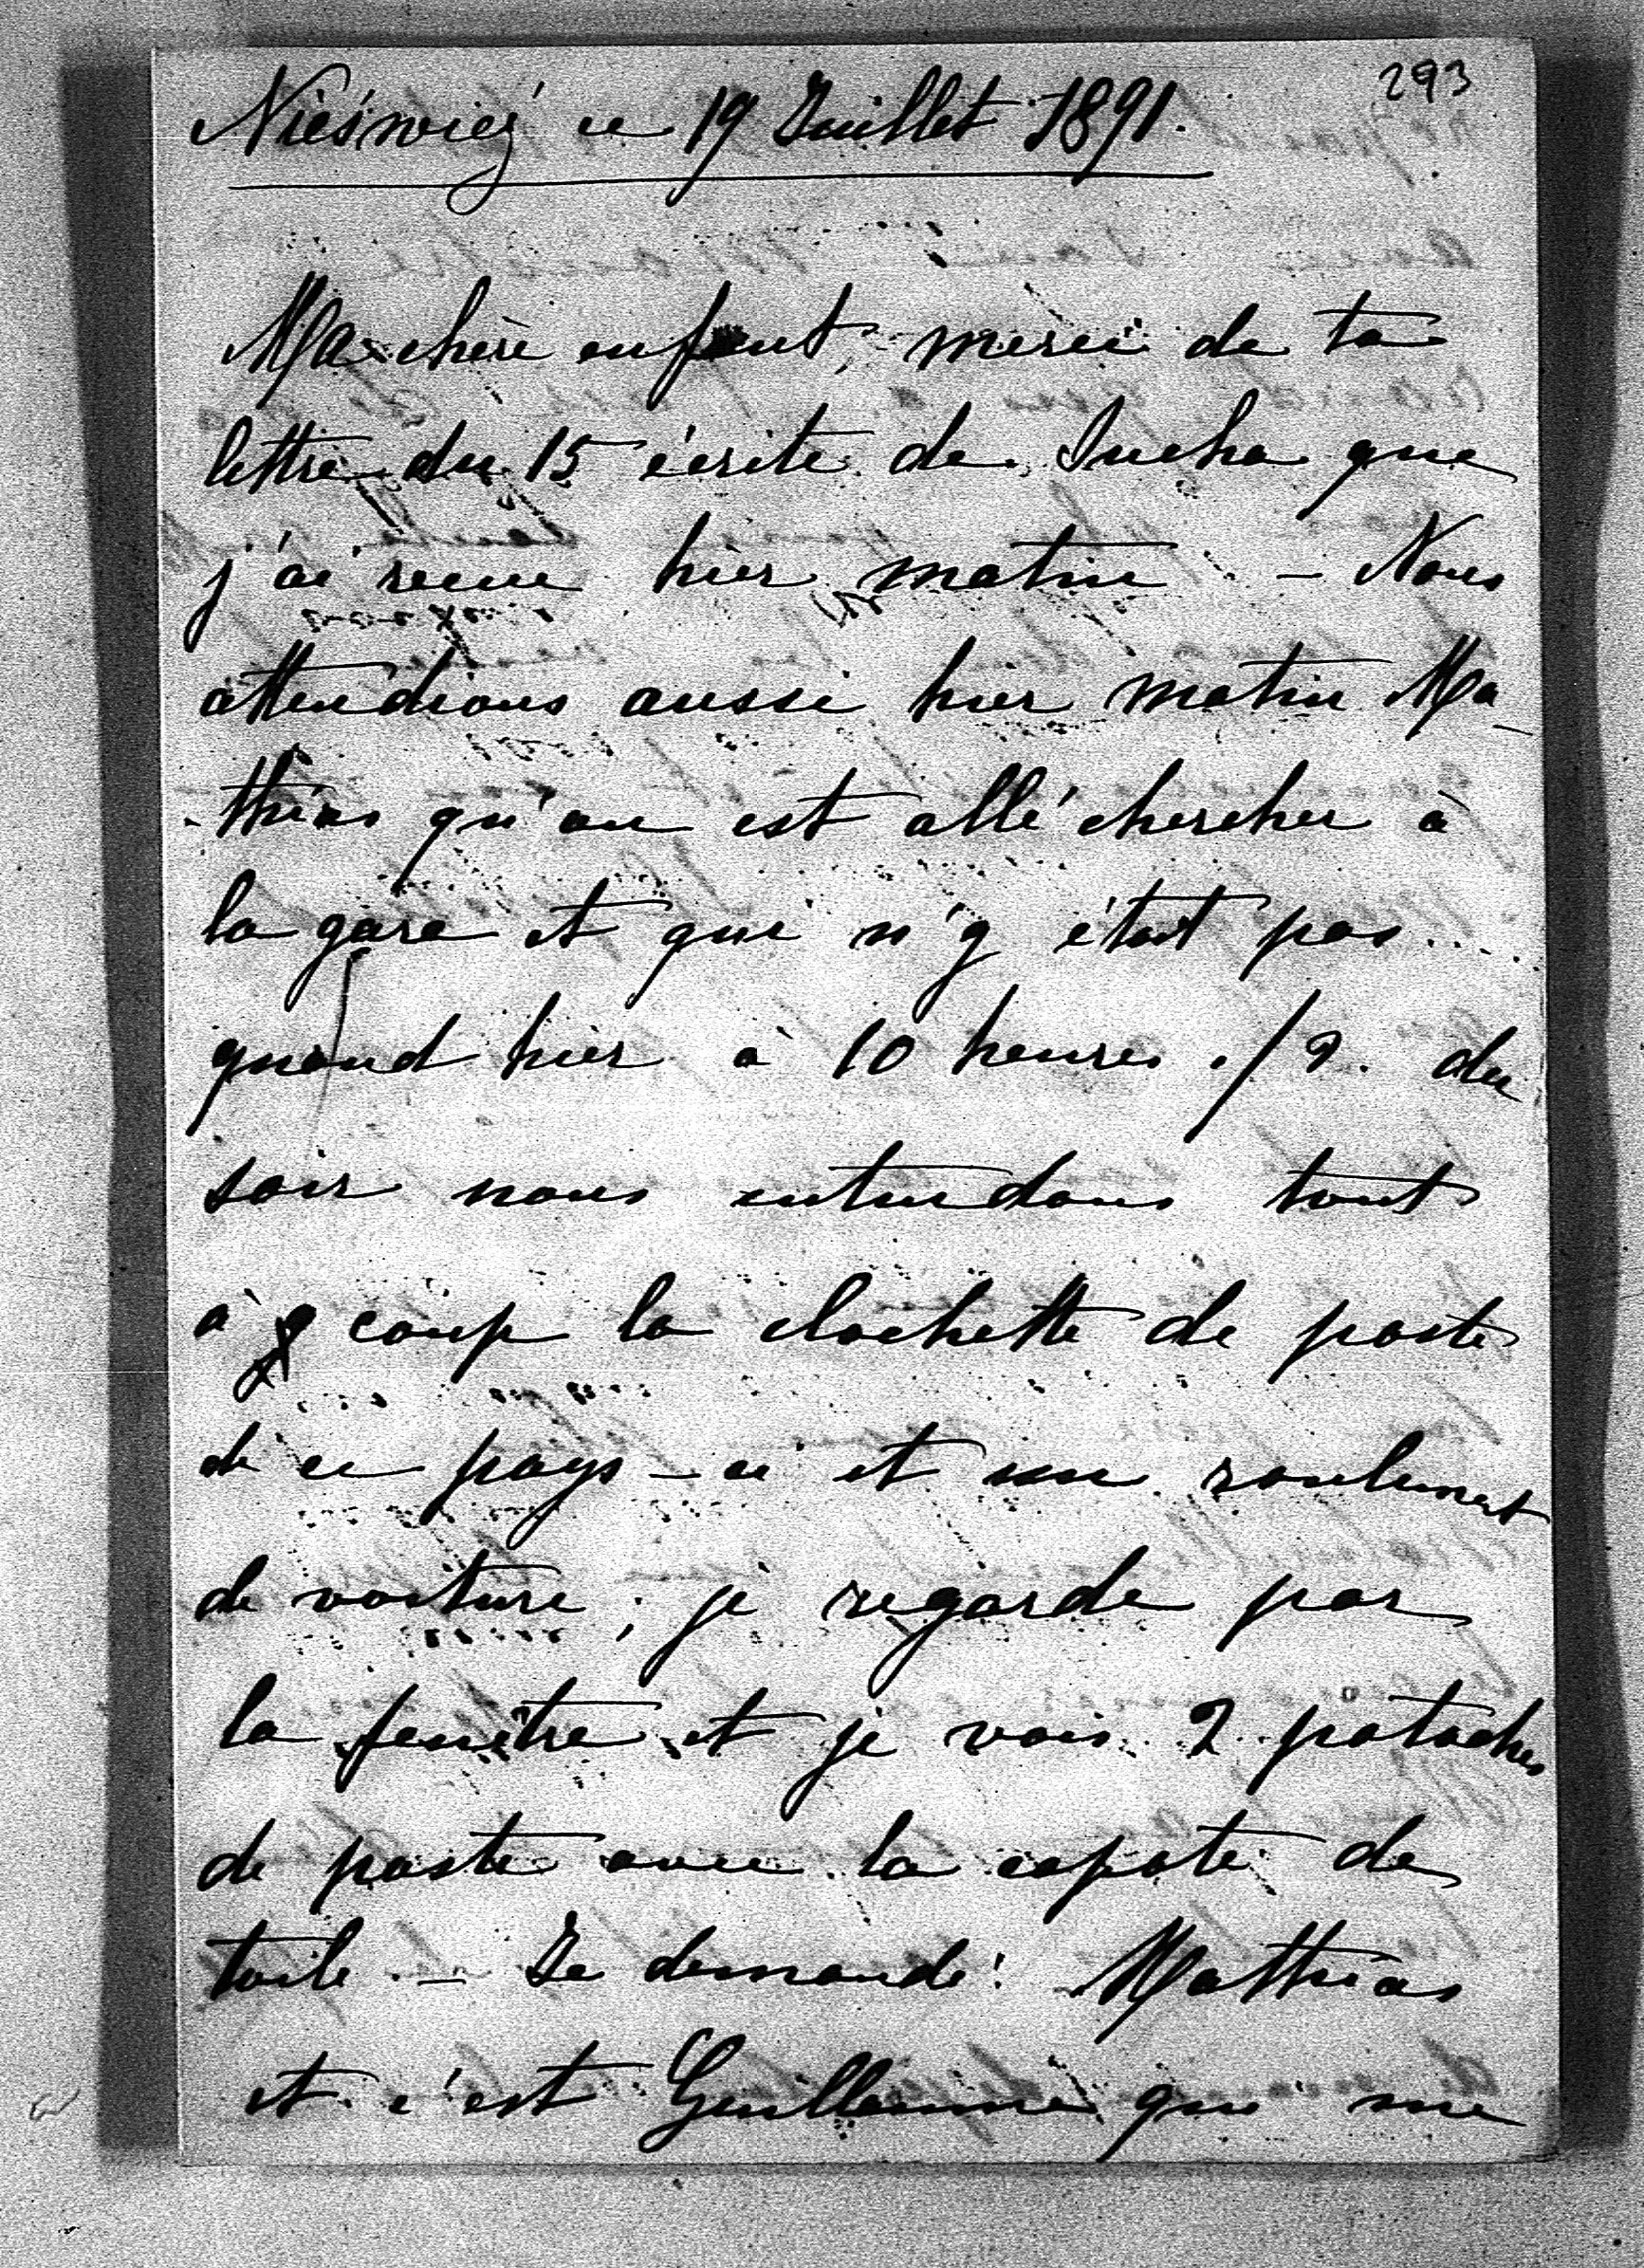 293
Nieśwież ce 19 Juillet 1891.
Ma chère enfant, merci de ta
lettre du 15 écrite de Sucha que
j'ai reçue hier matin - Nous
attendions aussi hier matin Ma-
-thias qu'on est allé chercher à
la gare et qui n'y était pas...
quand hier à 10 heures 1/2 du
soir nous entendons tout
à coup la clochette de poste
de ce pays-ci et un roulement
de voiture; je regarde par
la fenêtre et je vois 2 pataches
de poste avec la capote de
toile - Je demande: Matthias
et c'est Guillaume qui me